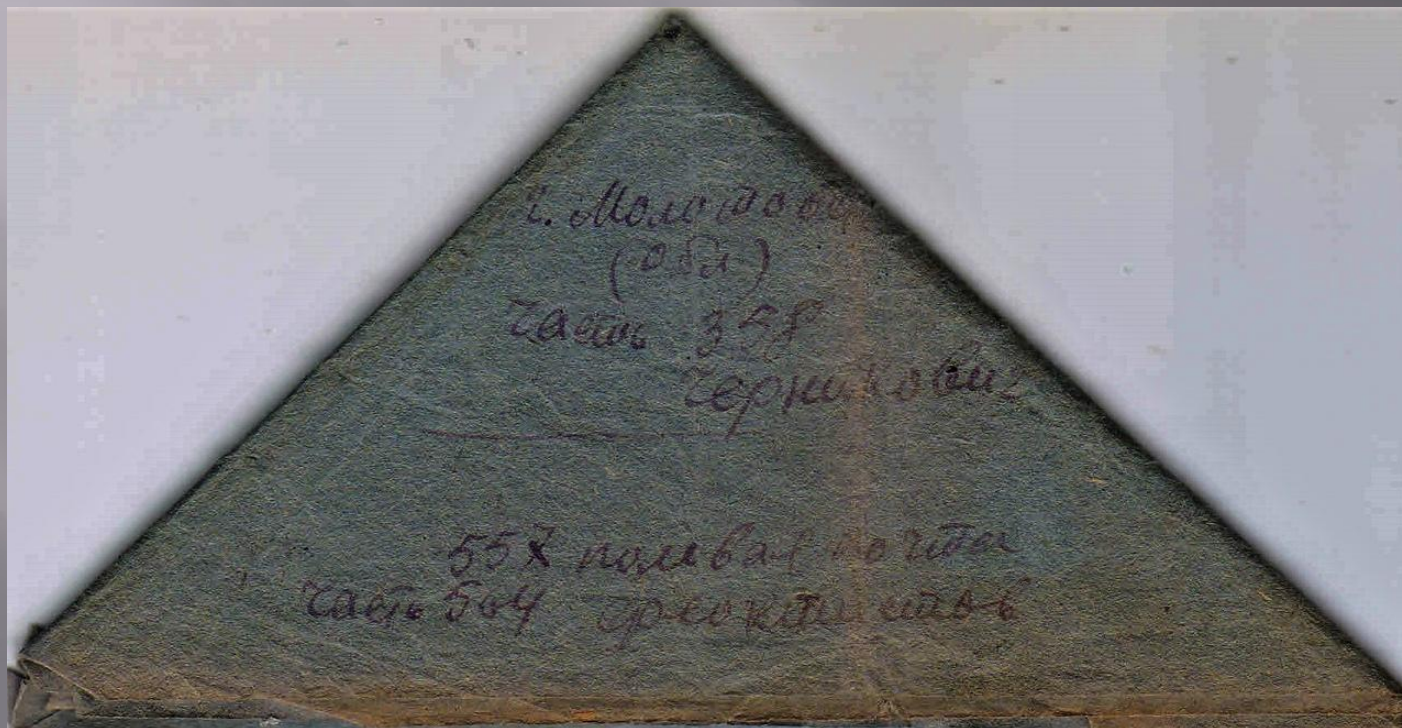 г. Молотов
(обл)
часть 358
Черникович
557 полевая почта
часть 504